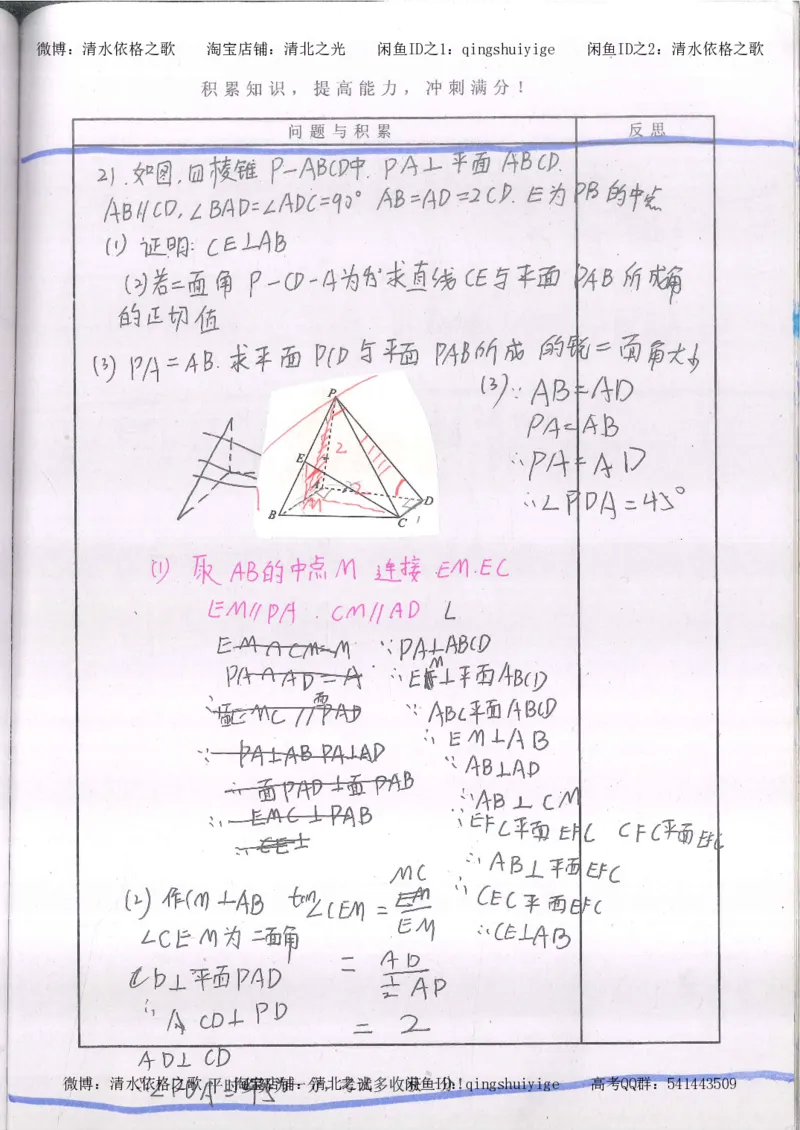 微博：清水依格之歌 淘宝店铺：清北之光 闲鱼ID之1：qingshuiyige 闲鱼ID之2：清水依格之歌
积累知识，提高能力，冲刺满分！
问题与积累 反思
21.如图,四棱锥 P-ABCD中. PA⊥平面ABCD.
AB//CD,∠BAD=∠ADC=90° AB=AD=2CD. E为PB的中点
(1) 证明: CE⊥AB
(2)若二面角 P-CD-A为45°求直线CE与平面PAB所成角
的正切值
(3) PA=AB.求平面PCD与平面PAB所成的锐二面角大小
(3)∵AB=AD
PA=AB
∴PA=AD
∴∠PDA=45°
P
E
2
4
A
2
M
B
C
1
D
(1) 取AB的中点M 连接EM.EC
EM//PA CM//AD
EM∩CM=M
PA∩AD=A
MC//面PAD
∵PA⊥AB PA⊥AD
∴面PAD⊥面PAB
∴EMC⊥PAB
∴CE⊥
∵PA⊥ABCD
∴EM⊥平面ABCD
∵AB⊂平面ABCD
∴EM⊥AB
∵AB⊥AD
∴AB⊥CM
∵EF⊂平面EFC CF⊂平面EFC
∴AB⊥平面EFC
∵CE⊂平面EFC
∴CE⊥AB
(2) 作CM⊥AB tan∠CEM=MC/EM
∠CEM为二面角
=AD/½AP
CD⊥平面PAD
∴CD⊥PD
=2
AD⊥CD
∴∠PDA=45°
微博：清水依格之歌 淘宝店铺：清北之光 闲鱼ID:qingshuiyige 高考QQ群：541443509